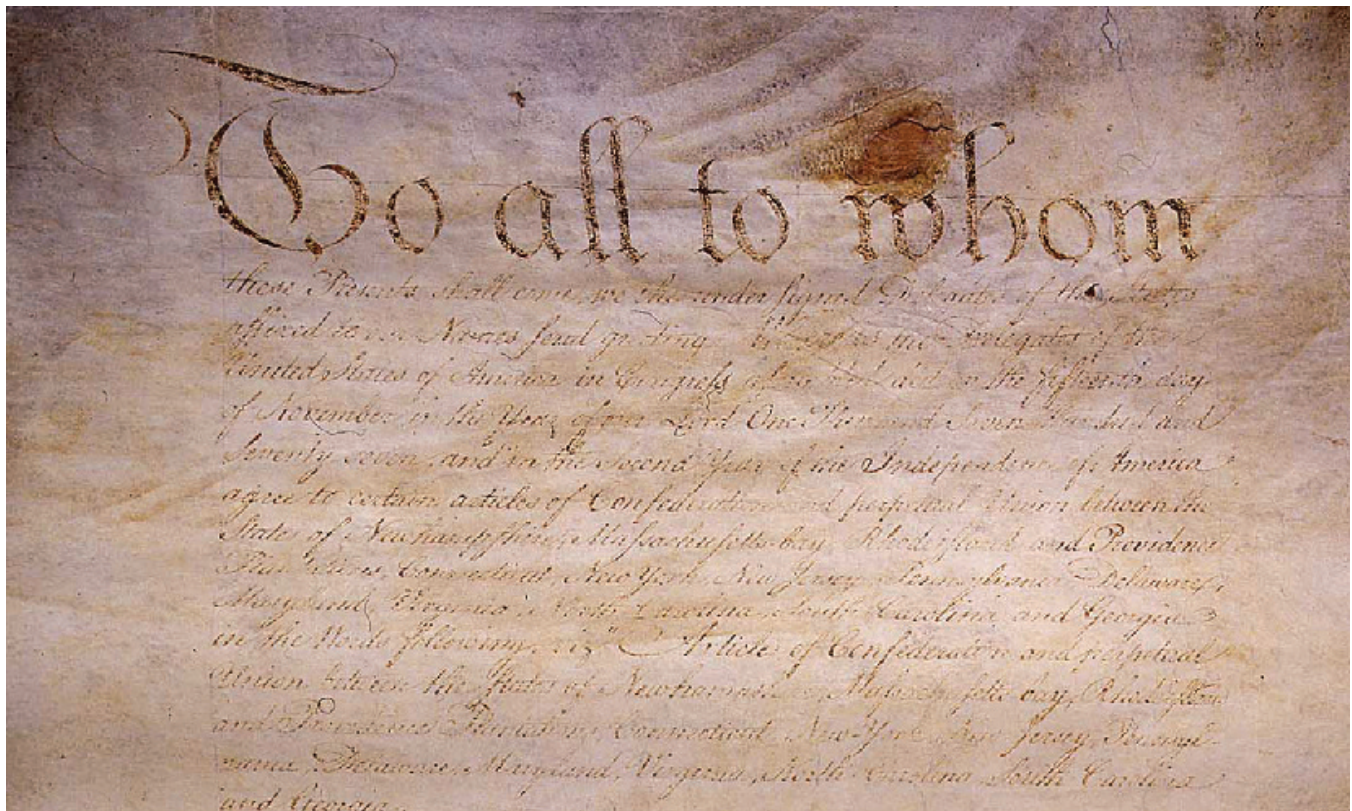 To all to whom
these Presents shall come, we the undersigned Delegates of the States
affixed to our Names send greeting. Whereas the Delegates of the
United States of America in Congress assembled did on the fifteenth day
of November in the Year of our Lord One Thousand Seven Hundred and
Seventy seven, and in the Second Year of the Independence of America
agree to certain articles of Confederation and perpetual Union between the
States of Newhampshire, Massachusetts-bay, Rhodeisland and Providence
Plantations, Connecticut, New York, New Jersey, Pennsylvania, Delaware,
Maryland, Virginia, North Carolina, South Carolina, and Georgia
in the Words following, viz. Articles of Confederation and perpetual
Union between the States of Newhampshire, Massachusetts bay, Rhodeisland
and Providence Plantations, Connecticut, New York, New Jersey, Pennsyl-
vania, Delaware, Maryland, Virginia, North Carolina, South Carolina
and Georgia.